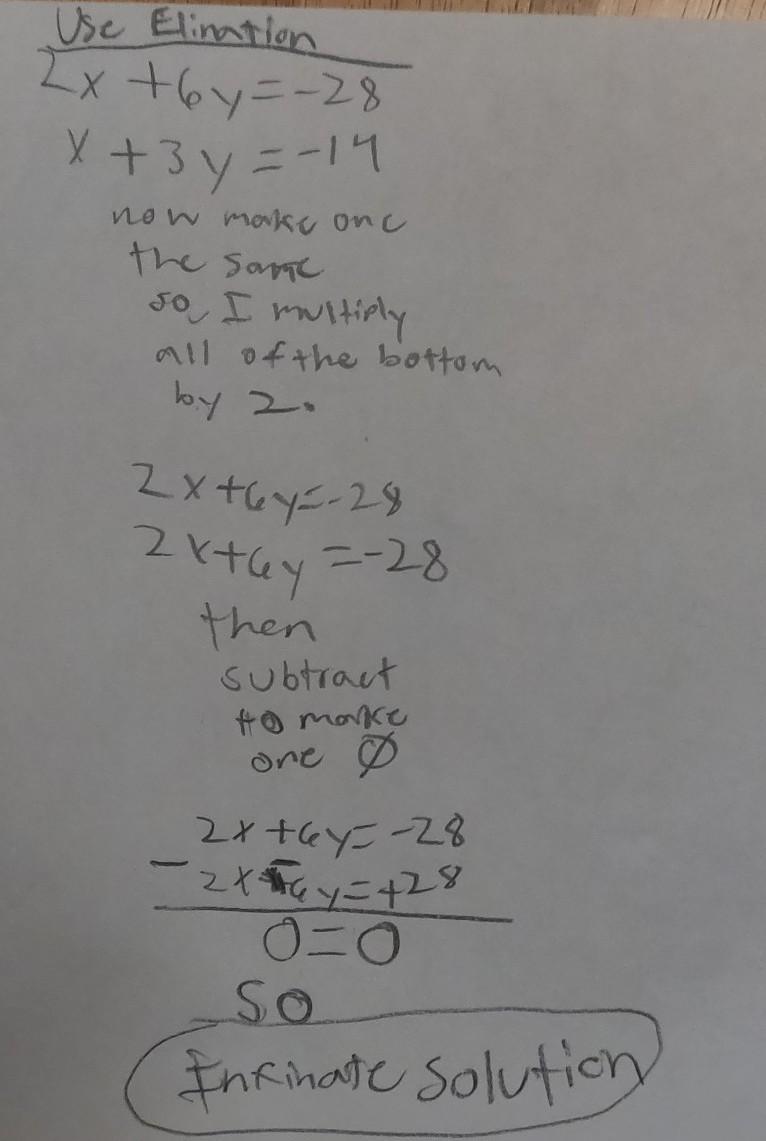 Use Elination
2x +6y=-28
x +3y=-14
now make one
the same
so I multiply
all of the bottom
by 2.
2x+6y=-28
2x+6y=-28
then
subtract
to make
one 0
2x+6y=-28
-2x-6y=+28
0=0
so
Infinate solution